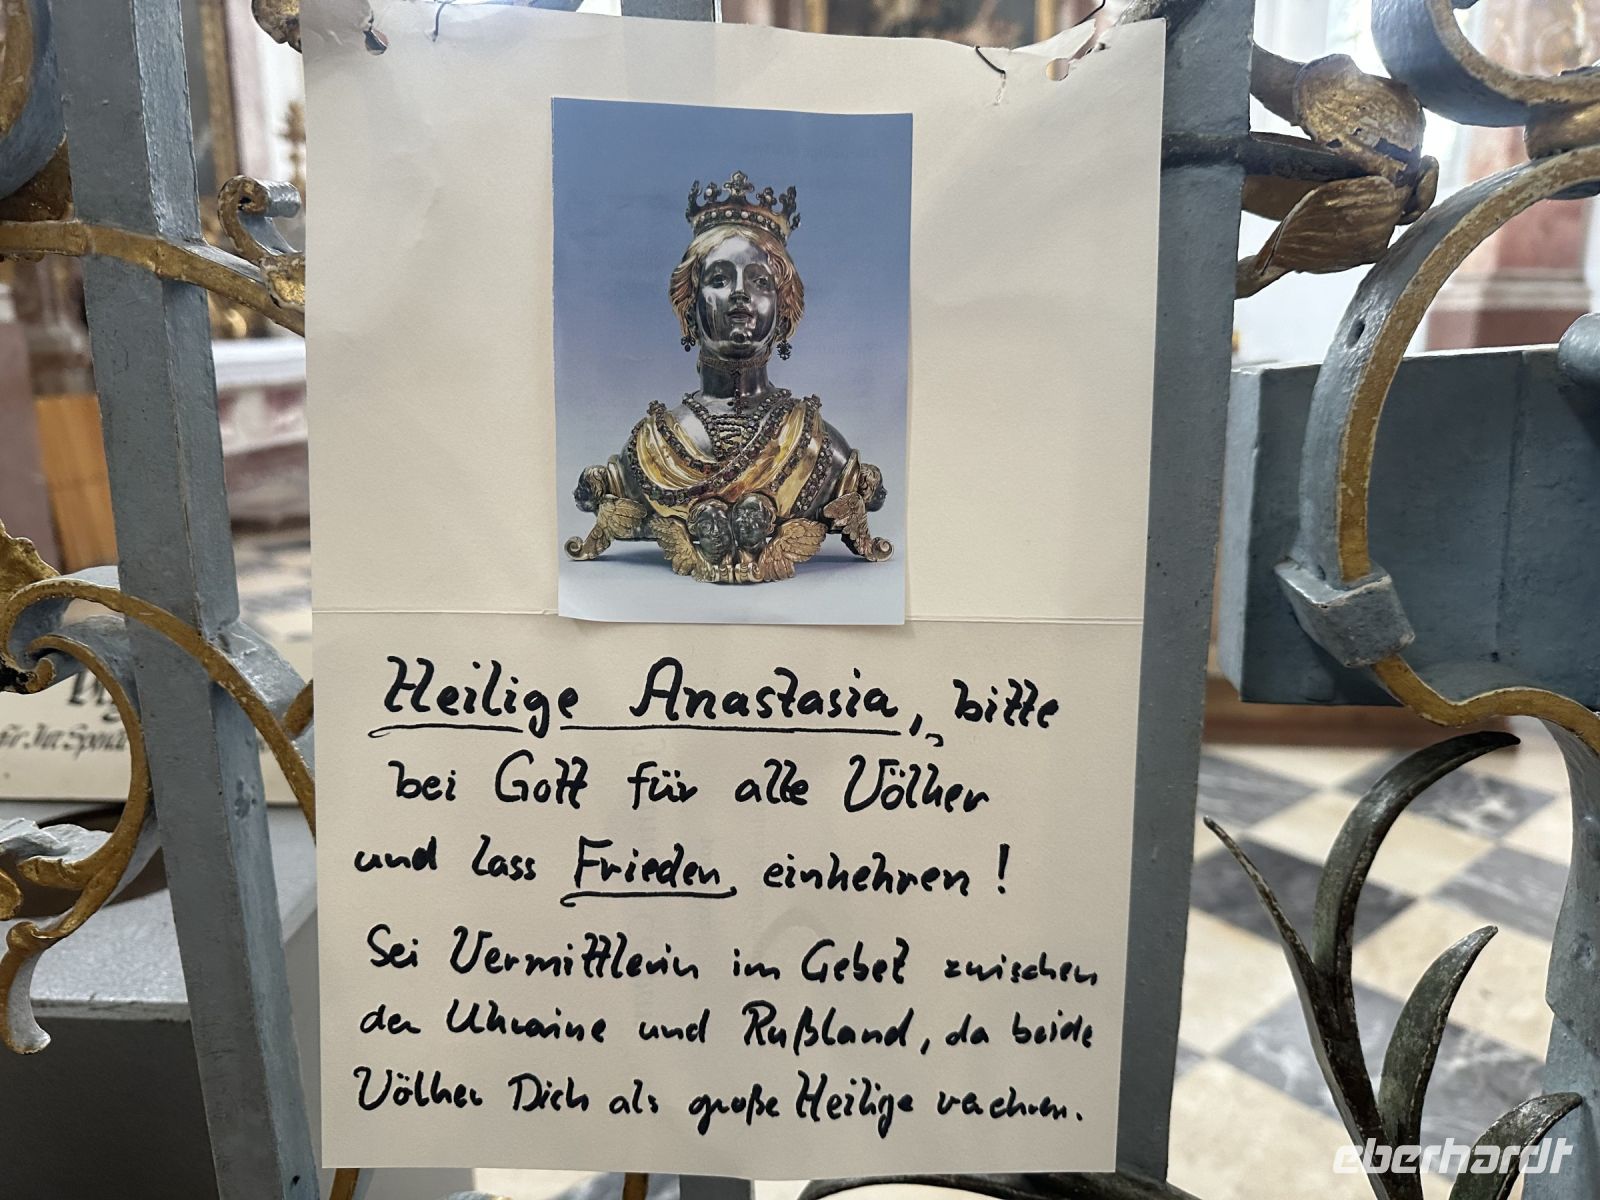 Heilige Anastasia, bitte
bei Gott für alle Völker
und lass Frieden einkehren!
Sei Vermittlerin im Gebet zwischen
der Ukraine und Rußland, da beide
Völker Dich als große Heilige verehren.
für Ihre
eberhardt